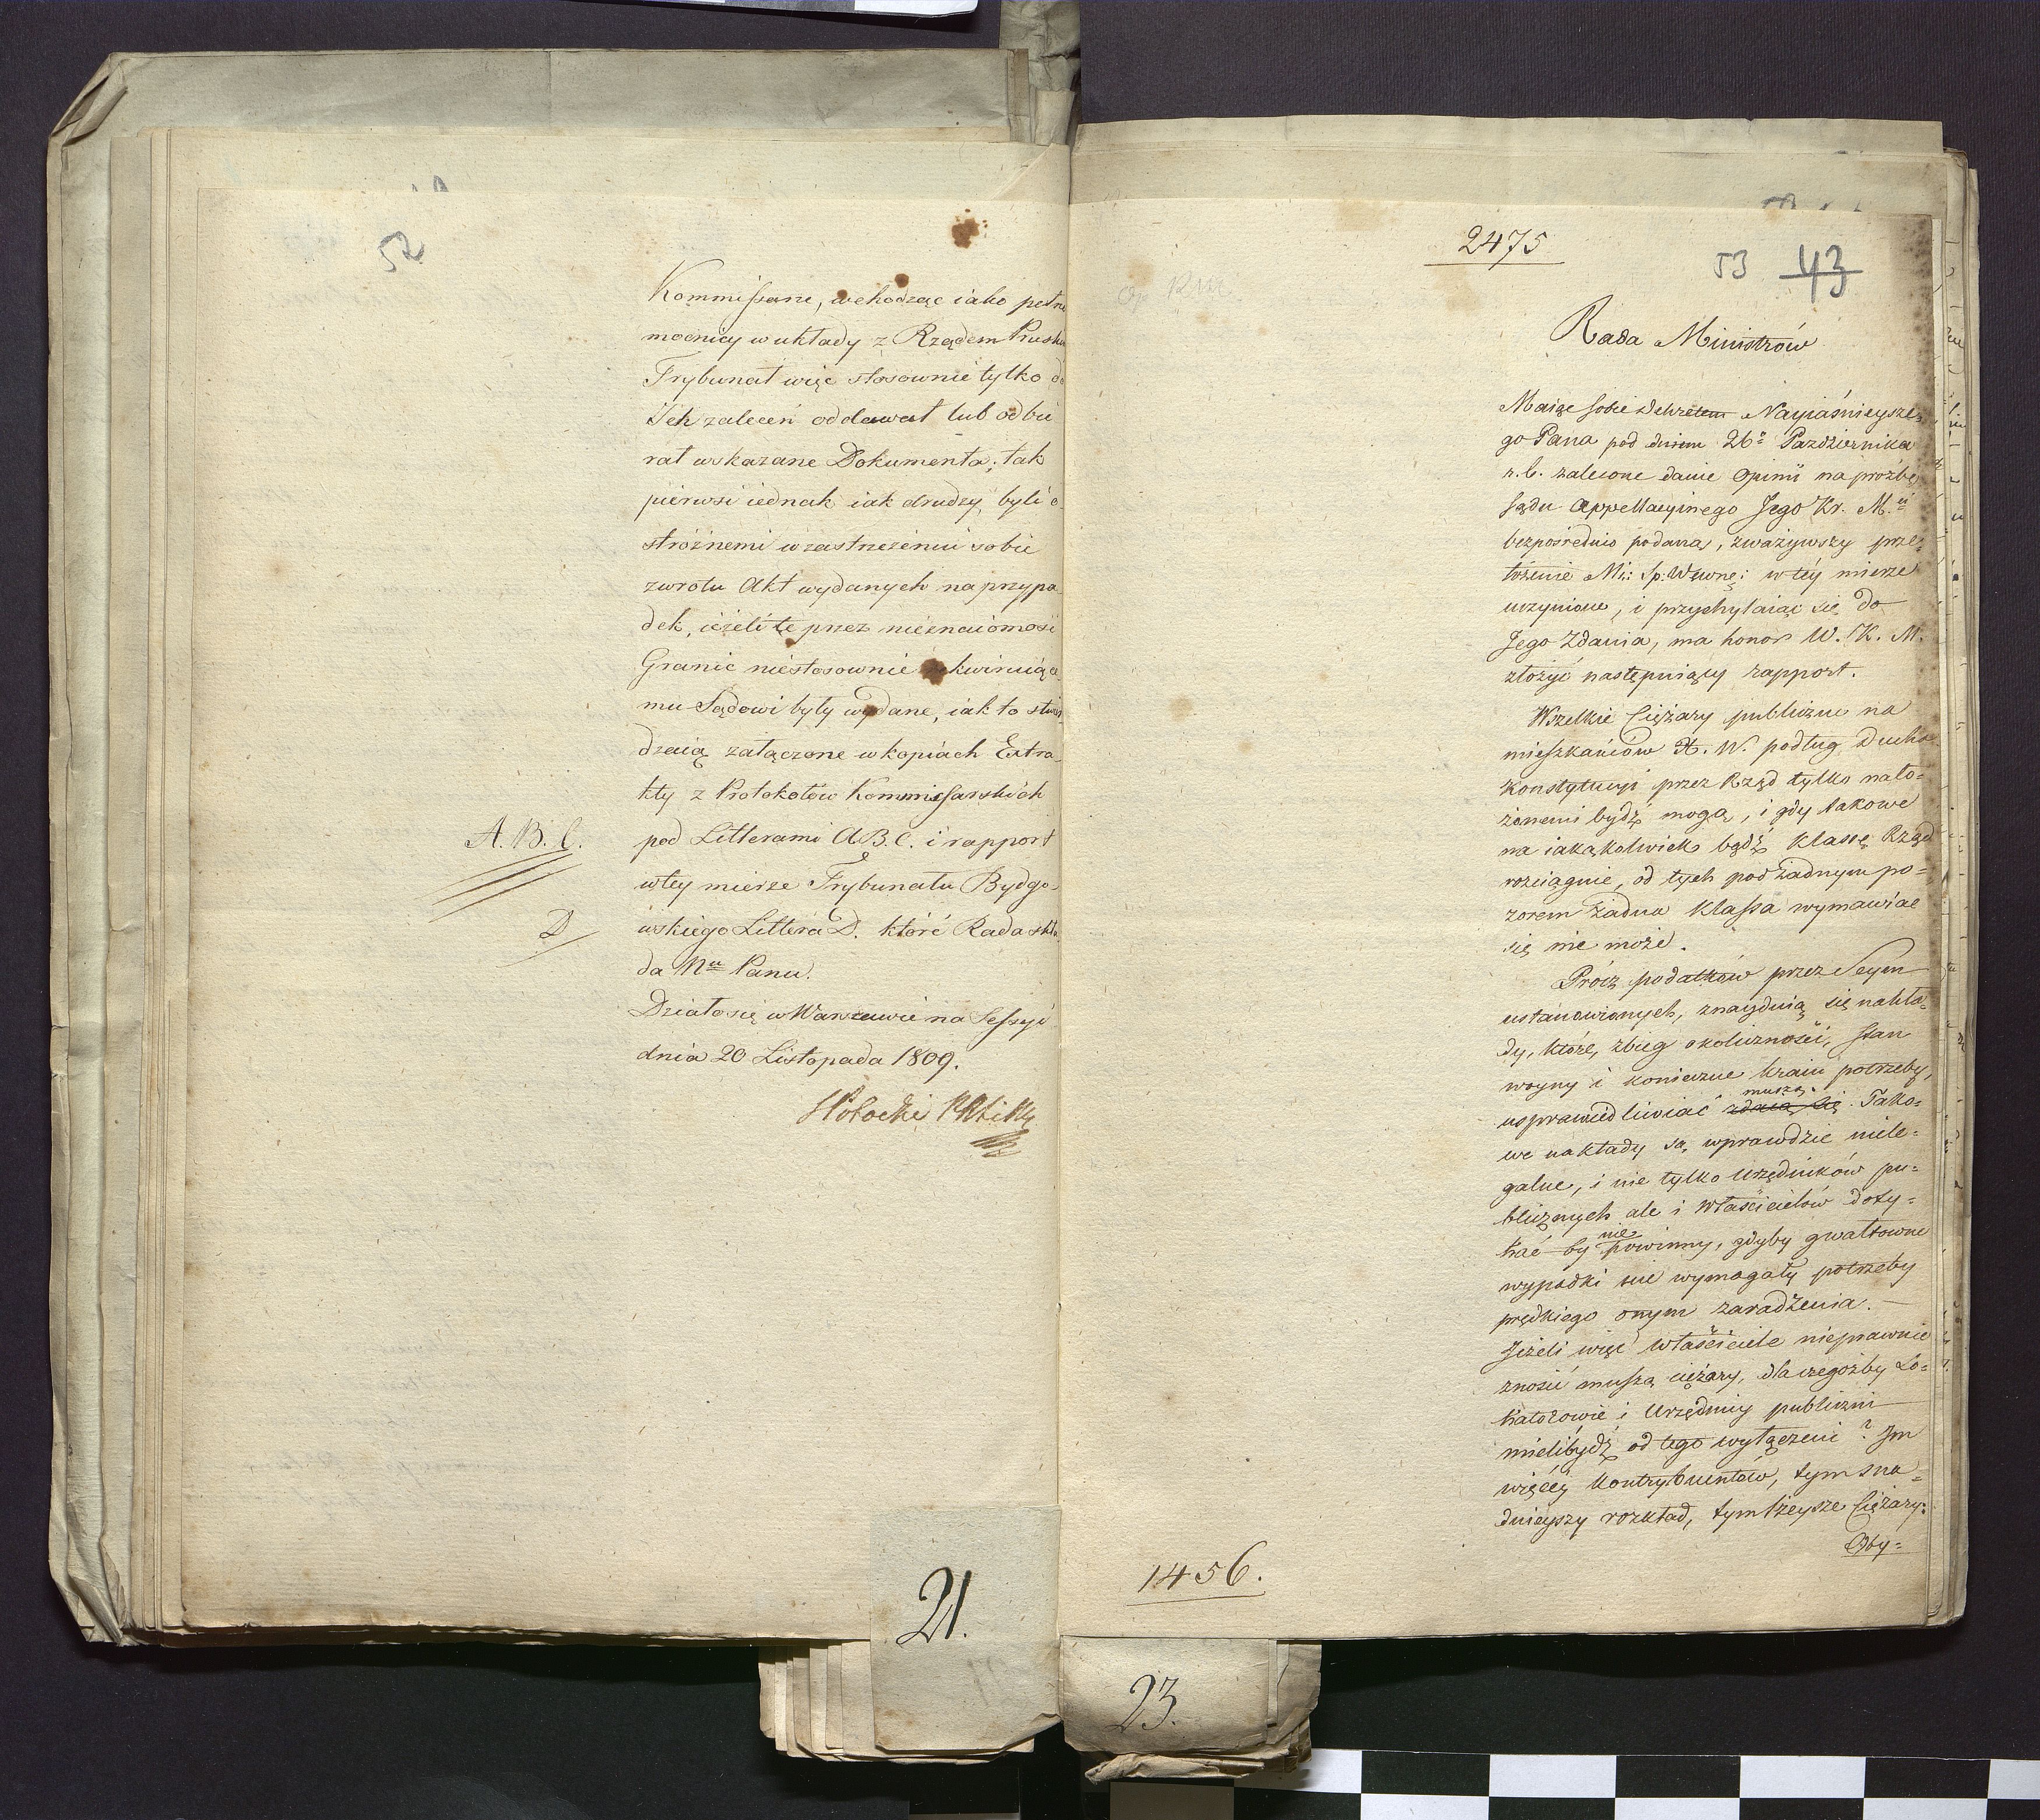 52
Kommissarze, wchodząc iako pełno
mocnicy w układy z Rządem Prusk
Trybunał więc stosownie tylko do
Ich zaleceń oddawał lub odbie
rał wskazane Dokumenta; tak
pierwsi iednak iak drudzy, byli o
stróżnemi w zastrzeżeniu sobie
zwrotu Akt wydanych na przypa
dek, ieżeli te przez nieznaiomość
Granic niestosownie rekwiruiące
mu Sądowi były wydane, iak to stwier
dzaią załączone w kopiach Extra
kty z Protokołów Kommissarskich
A. B. C. pod Litterami A B. C. i rapport
w tey mierze Trybunału Bydgo-
D wskiego Littera D. któré Rada skła
da Nu Panu.
Działo się w Warszawie na Sessyi
dnia 20 Listopada 1809.
21.
2475
53 43
Rada Ministrów
Maiąc sobie Dekretem Nayiaśnieysze-
go Pana pod dniem 26o Października
r. b. zalecone danie Opinii na proźbę
Sądu Appellacyinego Jego Kr. M.ci
bezpośrednio podaną, zważywszy prze-
łożenie Mi: Sp: Wewnę: w téy mierze
uczynione, i przychylaiąc się do
Jego Zdania, ma honor W. K. M.
złożyć następuiący rapport.
Wszelkie Ciężary publiczne na
mieszkańców X. W. podług Ducha
Konstytucyi przez Rząd tylko nało-
żonemi bydź mogą, i gdy takowe
na iakąkolwiek bądź Klassę Rząd
rozciągnie, od tych pod żadnym po-
zorem żadna Klassa wymawiać
się nie może.
Prócz podatków przez Seym
ustanowionych, znayduią się nakła-
dy, które, zbieg okoliczności, stan
woyny i konieczne kraiu potrzeby,
muszą.
usprawiedliwiać zdaią się. Tako-
we nakłady są, wprawdzie niele-
galne, i nie tylko Urzędników pu-
blicznych ale i właścicielów doty-
nie
kać by powinny, gdyby gwałtowne
wypadki nie wymagały potrzeby
prędkiego onym zaradzenia.
Jeżeli więc właściciele nieprawnie
znosić muszą ciężary, dla czegożby Lo-
katorowie i Urzędnicy publiczni
mieli bydź od tego wyłączeni? Im
więcéy Kontrybuentów, tym sna-
dnieyszy rozkład, tym lżeysze Ciężary.
Oby-
1456.
23.